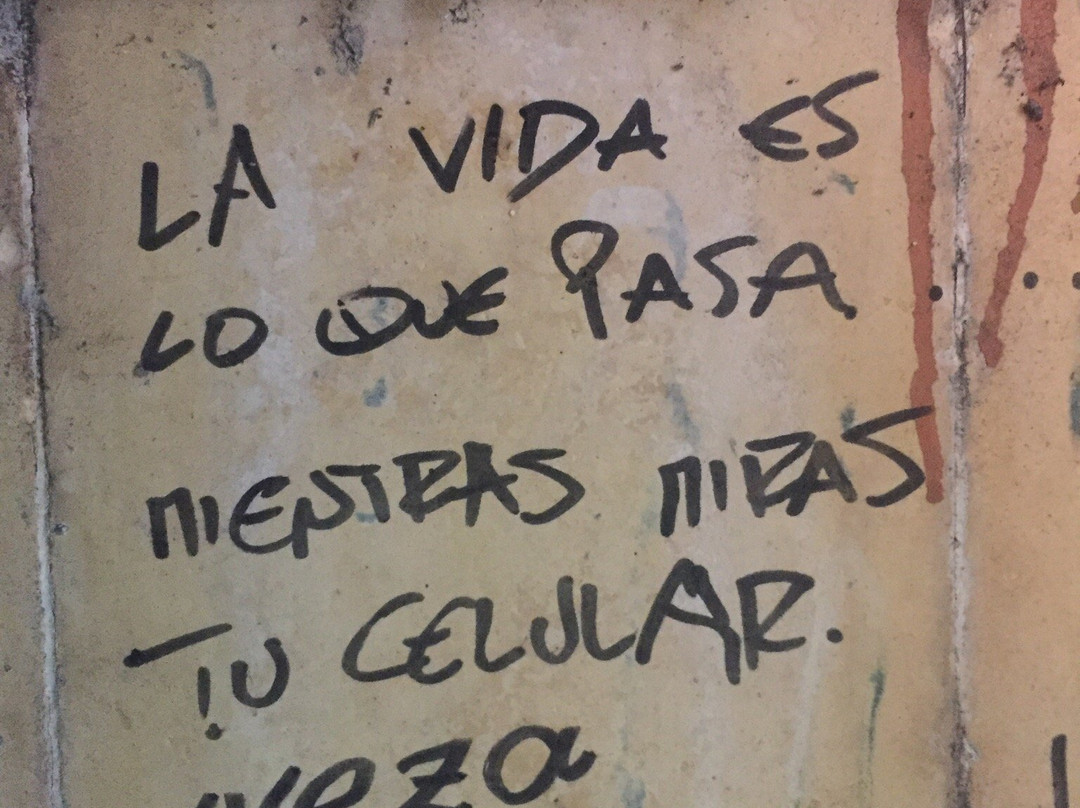 LA VIDA ES
LO QUE PASA
MIENTRAS MIRAS
TU CELULAR.